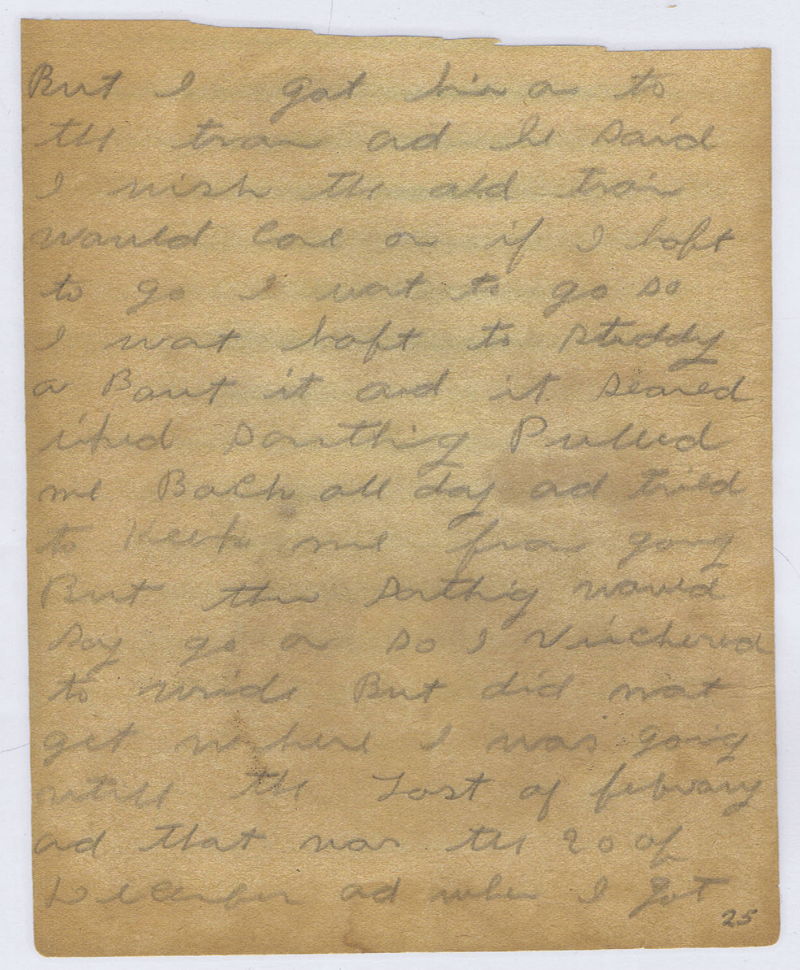 But I got him on to
the train ad he said
I wish the old train
would Come on if I haft
to go I wat to go so
I wat haft to studdy
a Bout it and it seamed
liked somthing Pulled
me Back all day ad tried
to keep me from going
But then somthig would
say go on so I Vinchered
to wride But did not
get where I was going
untill the Last of februay
ad that was the 20 of
December ad when I got
25